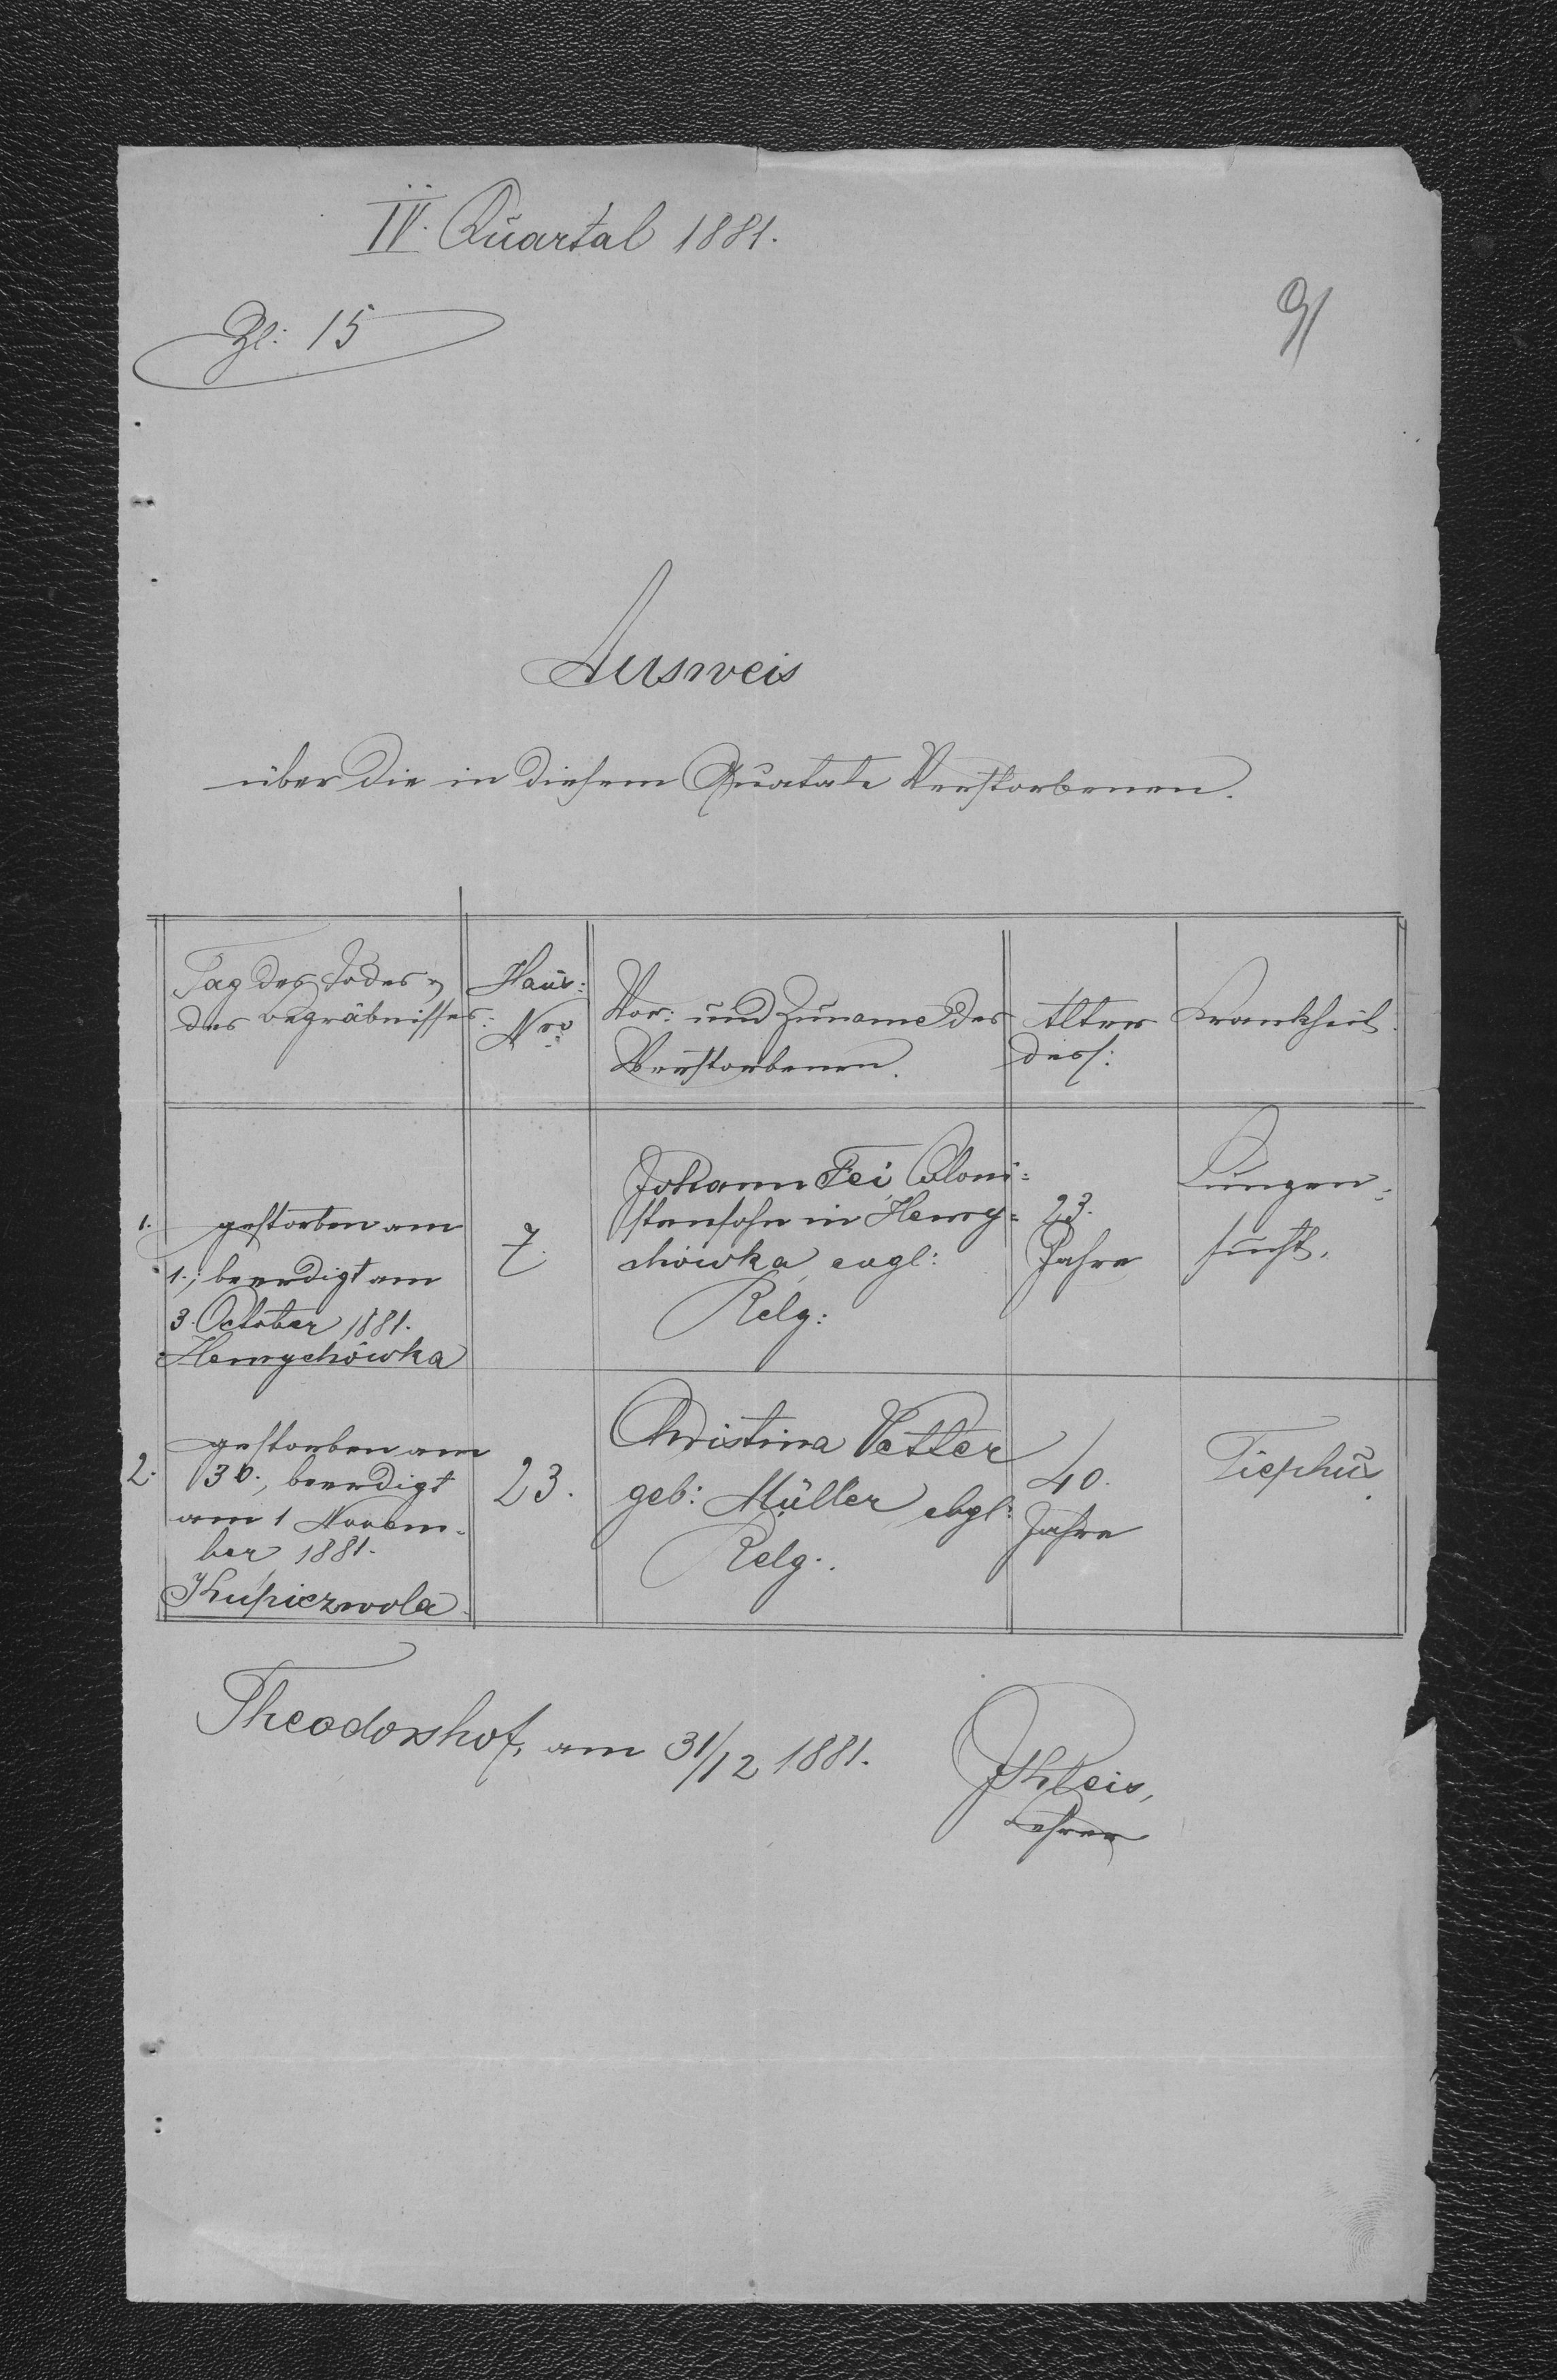 IV. Quartal 1881.
Zl: 15
91
Ausweis
über die in diesem Quatale Verstorbenen.
Tag des Todes &
des Begräbnisses:
Haus:
Nro
Vor: und Zuname des
Verstorbenen.
Alter
dess:
Krankheit.
1. gestorben am
1., beerdigt am
3. October 1881.
Henrychówka
7.
Johann Fei, Coloni=
stensohn in Henry=
chówka, evgl:
Relg:
23.
Jahre
Lungen=
sucht.
2. gestorben am
30., beerdigt
am 1 Novem-
ber 1881.
Kupiczwola.
23.
Christina Vetter
geb: Müller evgl:
Relg.
40.
Jahre
Tiephus.
Theodorshof, am 31/12 1881.
Lehrer